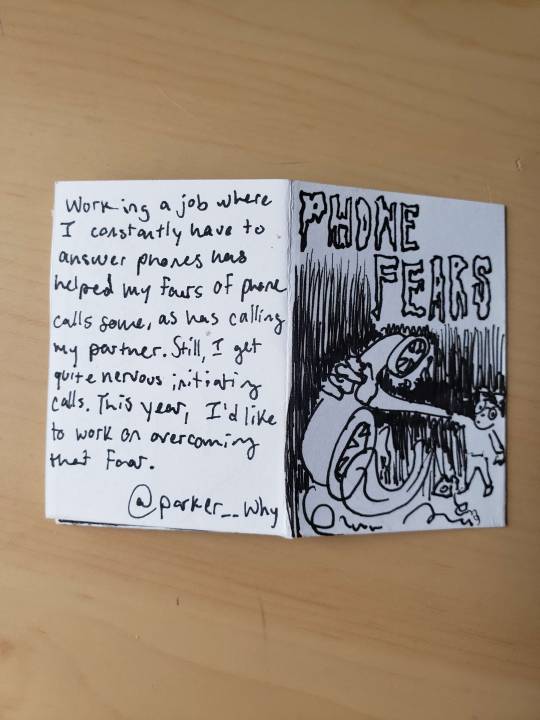 Working a job where
I constantly have to
answer phones has
helped my fears of phone
calls some, as has calling
my partner. Still, I get
quite nervous initiating
calls. This year, I'd like
to work on overcoming
that fear.
@parker__why
PHONE
FEARS